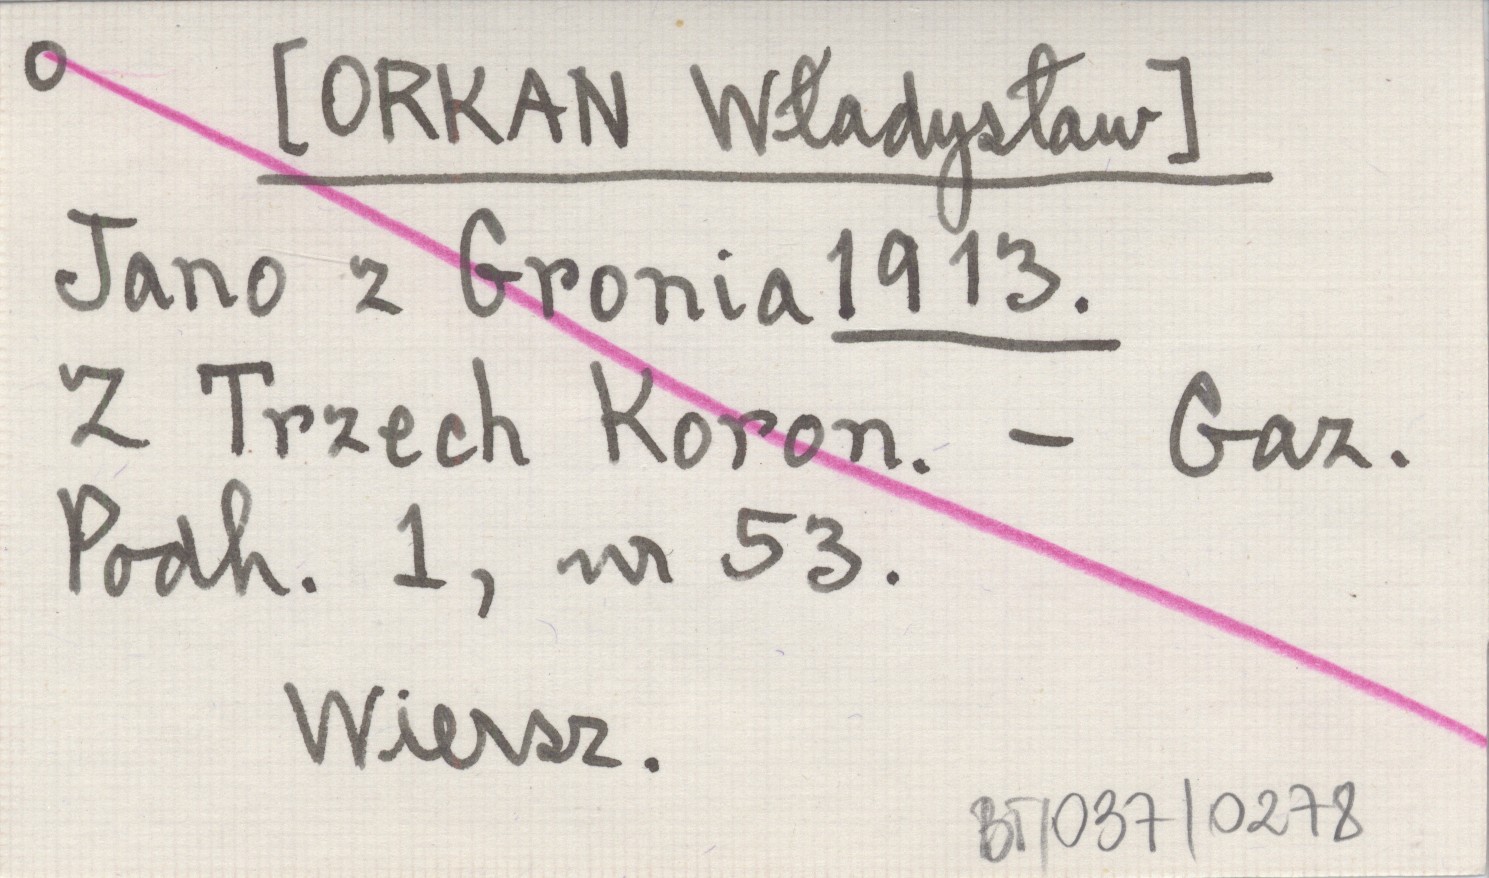 O [ORKAN Władysław]
Jano z Gronia 1913.
Z Trzech Koron. - Gaz.
Podh. 1, nr 53.
Wiersz.
BT/037/0278